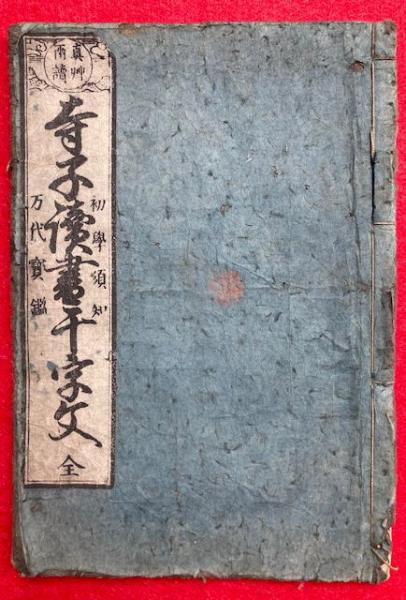 真艸
両讀
初學須知
寺子讀書千字文
万代寳鑑
全